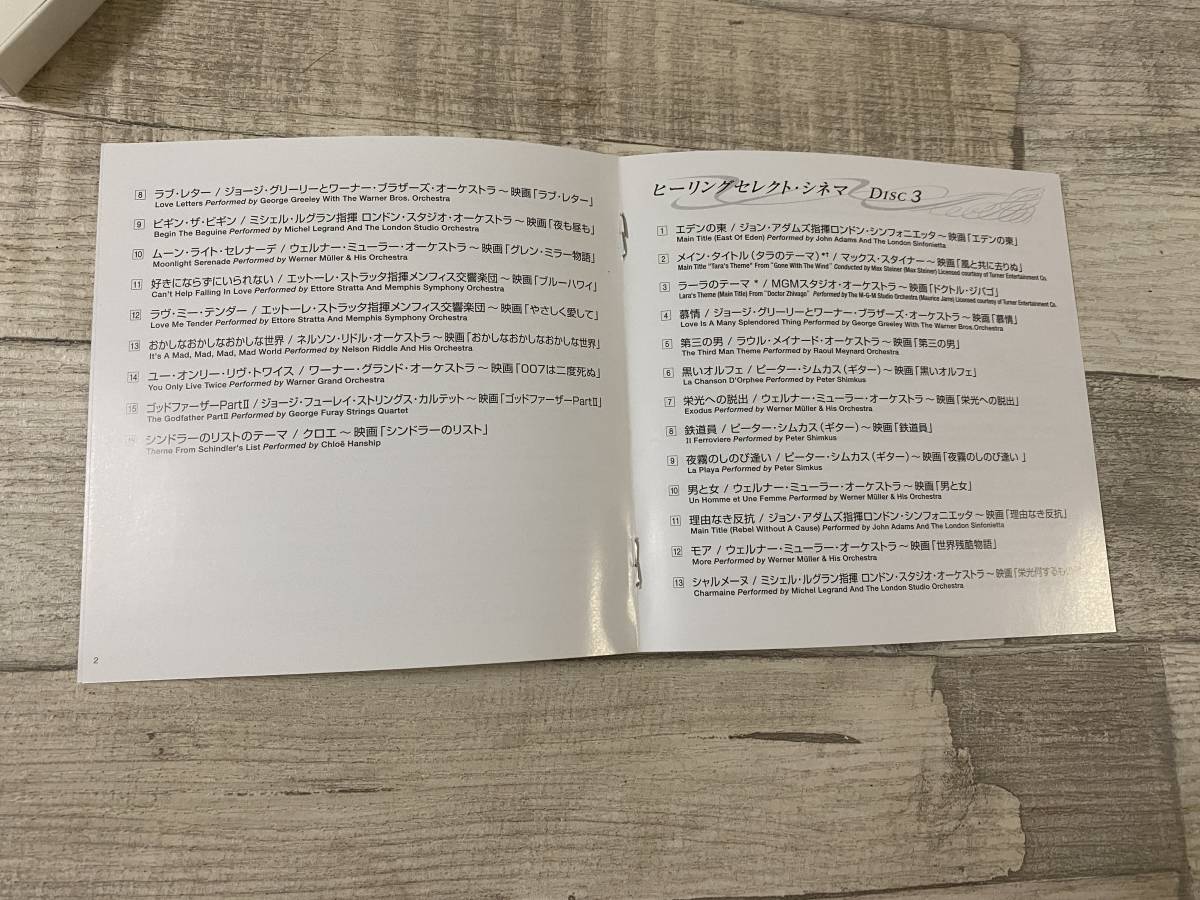 8 ラブ・レター / ジョージ・グリーリーとワーナー・ブラザーズ・オーケストラ～映画「ラブ・レター」
Love Letters Performed by George Greeley With The Warner Bros. Orchestra
9 ビギン・ザ・ビギン / ミシェル・ルグラン指揮 ロンドン・スタジオ・オーケストラ～映画「夜も昼も」
Begin The Beguine Performed by Michel Legrand And The London Studio Orchestra
10 ムーン・ライト・セレナーデ / ウェルナー・ミューラー・オーケストラ～映画「グレン・ミラー物語」
Moonlight Serenade Performed by Werner Müller & His Orchestra
11 好きにならずにいられない / エットーレ・ストラッタ指揮メンフィス交響楽団～映画「ブルーハワイ」
Can't Help Falling In Love Performed by Ettore Stratta And Memphis Symphony Orchestra
12 ラヴ・ミー・テンダー / エットーレ・ストラッタ指揮メンフィス交響楽団～映画「やさしく愛して」
Love Me Tender Performed by Ettore Stratta And Memphis Symphony Orchestra
13 おかしなおかしなおかしな世界 / ネルソン・リドル・オーケストラ～映画「おかしなおかしなおかしな世界」
It's A Mad, Mad, Mad, Mad World Performed by Nelson Riddle And His Orchestra
14 ユー・オンリー・リヴ・トワイス / ワーナー・グランド・オーケストラ～映画「007は二度死ぬ」
You Only Live Twice Performed by Warner Grand Orchestra
15 ゴッドファーザーPartⅡ / ジョージ・フューレイ・ストリングス・カルテット～映画「ゴッドファーザーPartⅡ」
The Godfather PartⅡ Performed by George Furay Strings Quartet
16 シンドラーのリストのテーマ / クロエ～映画「シンドラーのリスト」
Theme From Schindler's List Performed by Chloë Hanship
2
ヒーリングセレクト・シネマ DISC 3
1 エデンの東 / ジョン・アダムズ指揮ロンドン・シンフォニエッタ～映画「エデンの東」
Main Title (East Of Eden) Performed by John Adams And The London Sinfonietta
2 メイン・タイトル（タラのテーマ）*† / マックス・スタイナー～映画「風と共に去りぬ」
Main Title "Tara's Theme" From "Gone With The Wind" Conducted by Max Steiner (Max Steiner) Licensed courtesy of Turner Entertainment Co.
3 ラーラのテーマ * / MGMスタジオ・オーケストラ～映画「ドクトル・ジバゴ」
Lara's Theme (Main Title) From "Doctor Zhivago" Performed by The M-G-M Studio Orchestra (Maurice Jarre) Licensed courtesy of Turner Entertainment Co.
4 慕情 / ジョージ・グリーリーとワーナー・ブラザーズ・オーケストラ～映画「慕情」
Love Is A Many Splendored Thing Performed by George Greeley With The Warner Bros.Orchestra
5 第三の男 / ラウル・メイナード・オーケストラ～映画「第三の男」
The Third Man Theme Performed by Raoul Meynard Orchestra
6 黒いオルフェ / ピーター・シムカス（ギター）～映画「黒いオルフェ」
La Chanson D'Orphee Performed by Peter Shimkus
7 栄光への脱出 / ウェルナー・ミューラー・オーケストラ～映画「栄光への脱出」
Exodus Performed by Werner Müller & His Orchestra
8 鉄道員 / ピーター・シムカス（ギター）～映画「鉄道員」
Il Ferroviere Performed by Peter Shimkus
9 夜霧のしのび逢い / ピーター・シムカス（ギター）～映画「夜霧のしのび逢い 」
La Playa Performed by Peter Simkus
10 男と女 / ウェルナー・ミューラー・オーケストラ～映画「男と女」
Un Homme et Une Femme Performed by Werner Müller & His Orchestra
11 理由なき反抗 / ジョン・アダムズ指揮ロンドン・シンフォニエッタ～映画「理由なき反抗」
Main Title (Rebel Without A Cause) Performed by John Adams And The London Sinfonietta
12 モア / ウェルナー・ミューラー・オーケストラ～映画「世界残酷物語」
More Performed by Werner Müller & His Orchestra
13 シャルメーヌ / ミシェル・ルグラン指揮 ロンドン・スタジオ・オーケストラ～映画「栄光何するもの
Charmaine Performed by Michel Legrand And The London Studio Orchestra